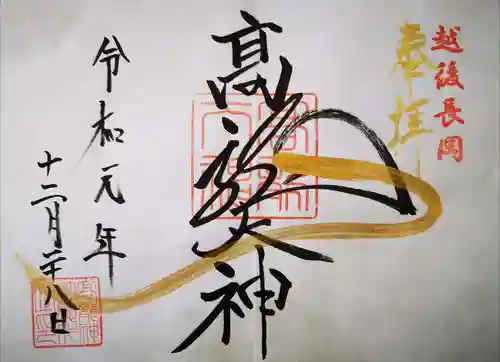 越後長岡
奉拝
高彦大神
令和元年
十二月二十八日